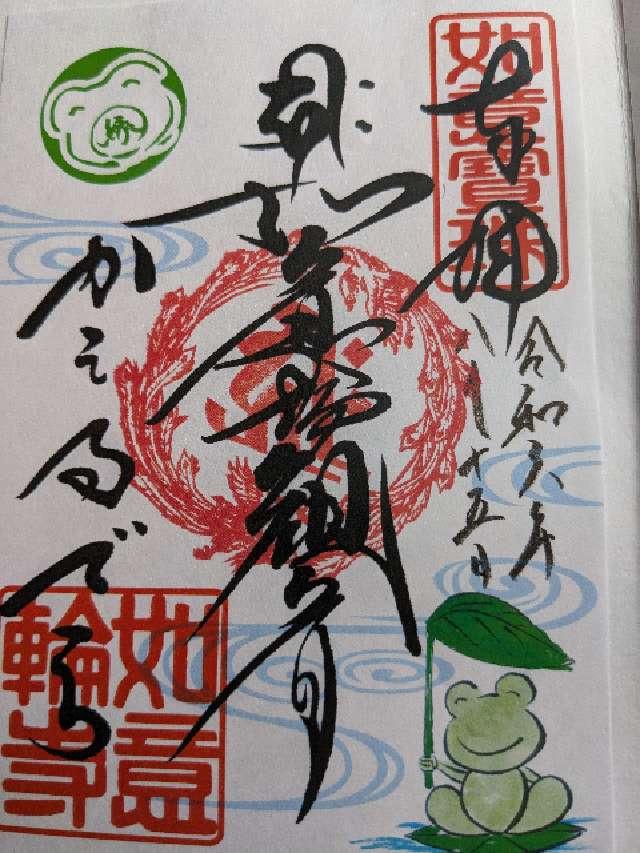 如意寶珠
奉拝
令和六年
八月十五日
如意輪観音
かえるでら
如意輪寺